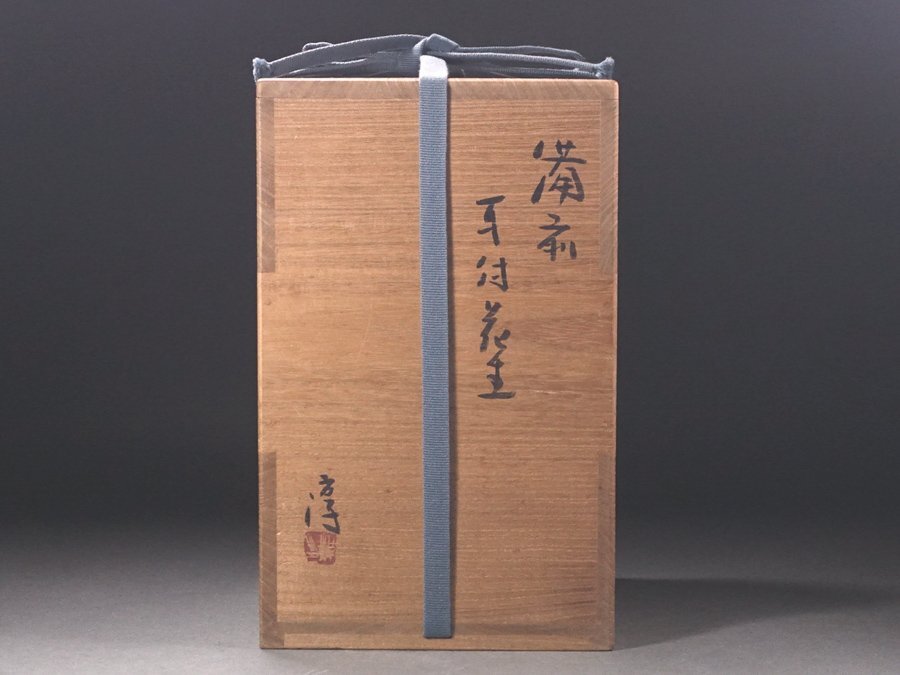 備前
耳付花生
淳